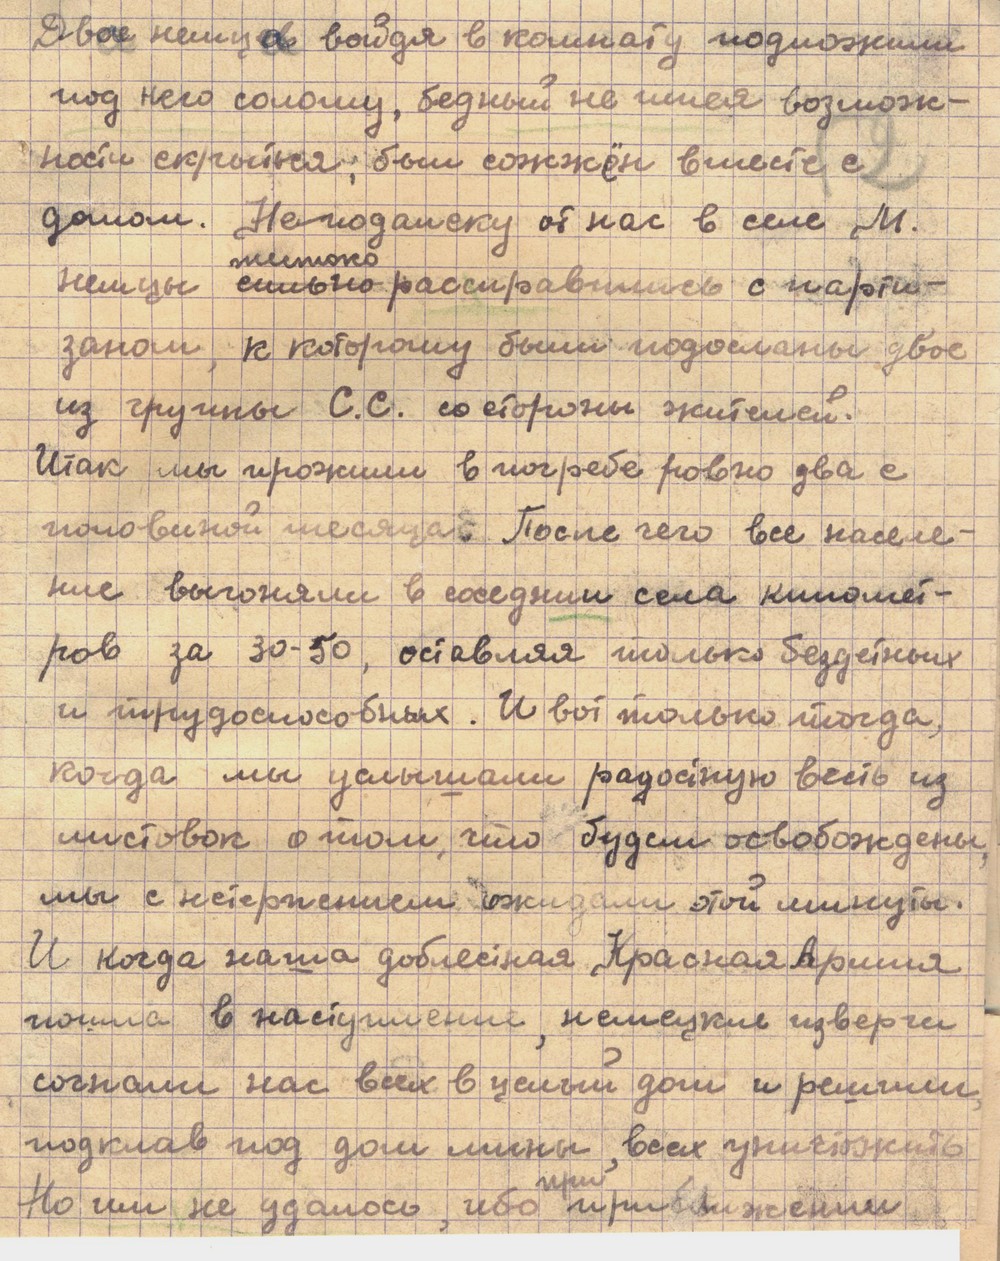 Двое немцов войдя в комнату подложили
под него солому, бедный не имея возмож-
ности скрыться, был сожжён вместе с
2
домом. Неподалеку от нас в селе М.
жестоко
немцы сильно расправились с парти-
заном, к которому были подосланы двое
из группы С.С. со стороны жителей.
Итак мы прожили в погребе ровно два с
половиной месяца. После чего все населе-
ние выгоняли в соседнии села километ-
ров за 30-50, оставляя только бездетных
и трудоспособных. И вот только тогда,
когда мы услышали радостную весть из
листовок о том, что будем освобождены,
мы с нетерпением ожидали этой минуты.
И когда наша доблестная Красная Армия
пошла в наступление, немецкие изверги
согнали нас всех в целый дом и решили,
подклав под дом мины, всех уничтожить
при
Но им не удалось, ибо приближении